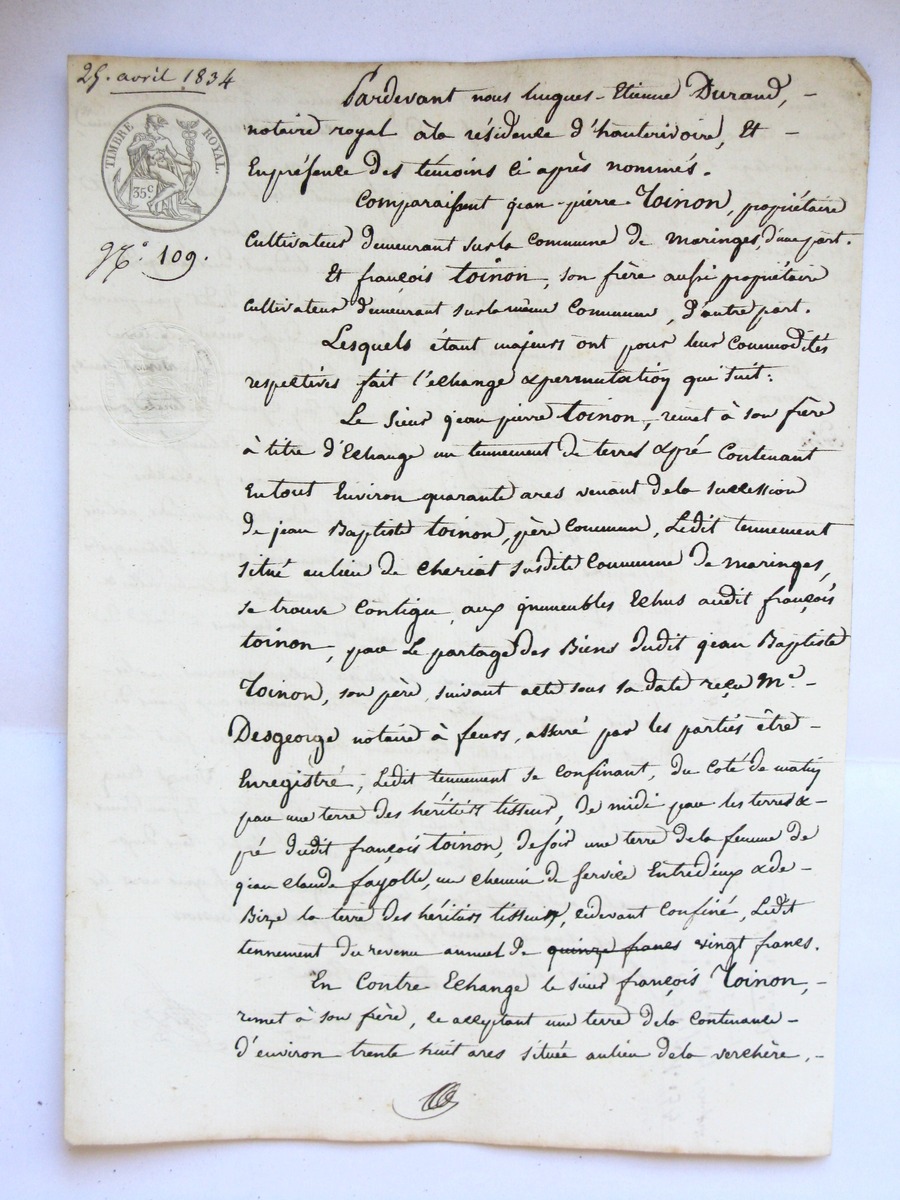 25. avril 1834
TIMBRE ROYAL.
35 C
N.° 109.
Pardevant nous hugues-Etienne Durand, -
notaire royal àla résidence d'hauterivoire, Et -
Enprésence des témoins Ci après nommés.
Comparaissent jean-pierre Toinon, propriétaire
Cultivateur demeurant surla Commune de maringes, d'une part.
Et françois toinon, son frère aussi propriétaire
Cultivateur demeurant surla même Commune, d'autre part.
Lesquels étant majeurs ont pour leur Commodités
respectives fait l'echange & permutation qui suit:
Le Sieur jean pierre toinon, remet à son frère
à titre d'Echange un tennement de terres & pré Contenant
Entout Environ quarante ares venant dela succession
De jean Baptiste toinon, père Commun, Ledit tennement
situé aulieu de Cheriat susdite Commune de maringes,
se trouve Contigu aux immeubles Echus audit françois
toinon, par Le partage des Biens dudit jean Baptiste
Toinon, son père, suivant acte sous sa date reçu M.e -
Desgeorge notaire à feurs, assuré par les parties être -
Enregistré; Ledit tennement se Confinant, du Coté de matin
par une terre des héritiers tisseur, de midi par les terres & -
pré dudit françois toinon, de soir une terre dela femme de
jean Claude fayolle, un Chemin de service Entredeux & de -
Bize la terre des héritiers tisseur, cidevant Confiné, Ledit
tennement du revenu annuel de quinze francs vingt francs.
En Contre Echange le sieur françois Toinon, -
remet à son frère, ce acceptant une terre dela Contenance -
d'environ trente huit ares située aulieu dela verchère, -